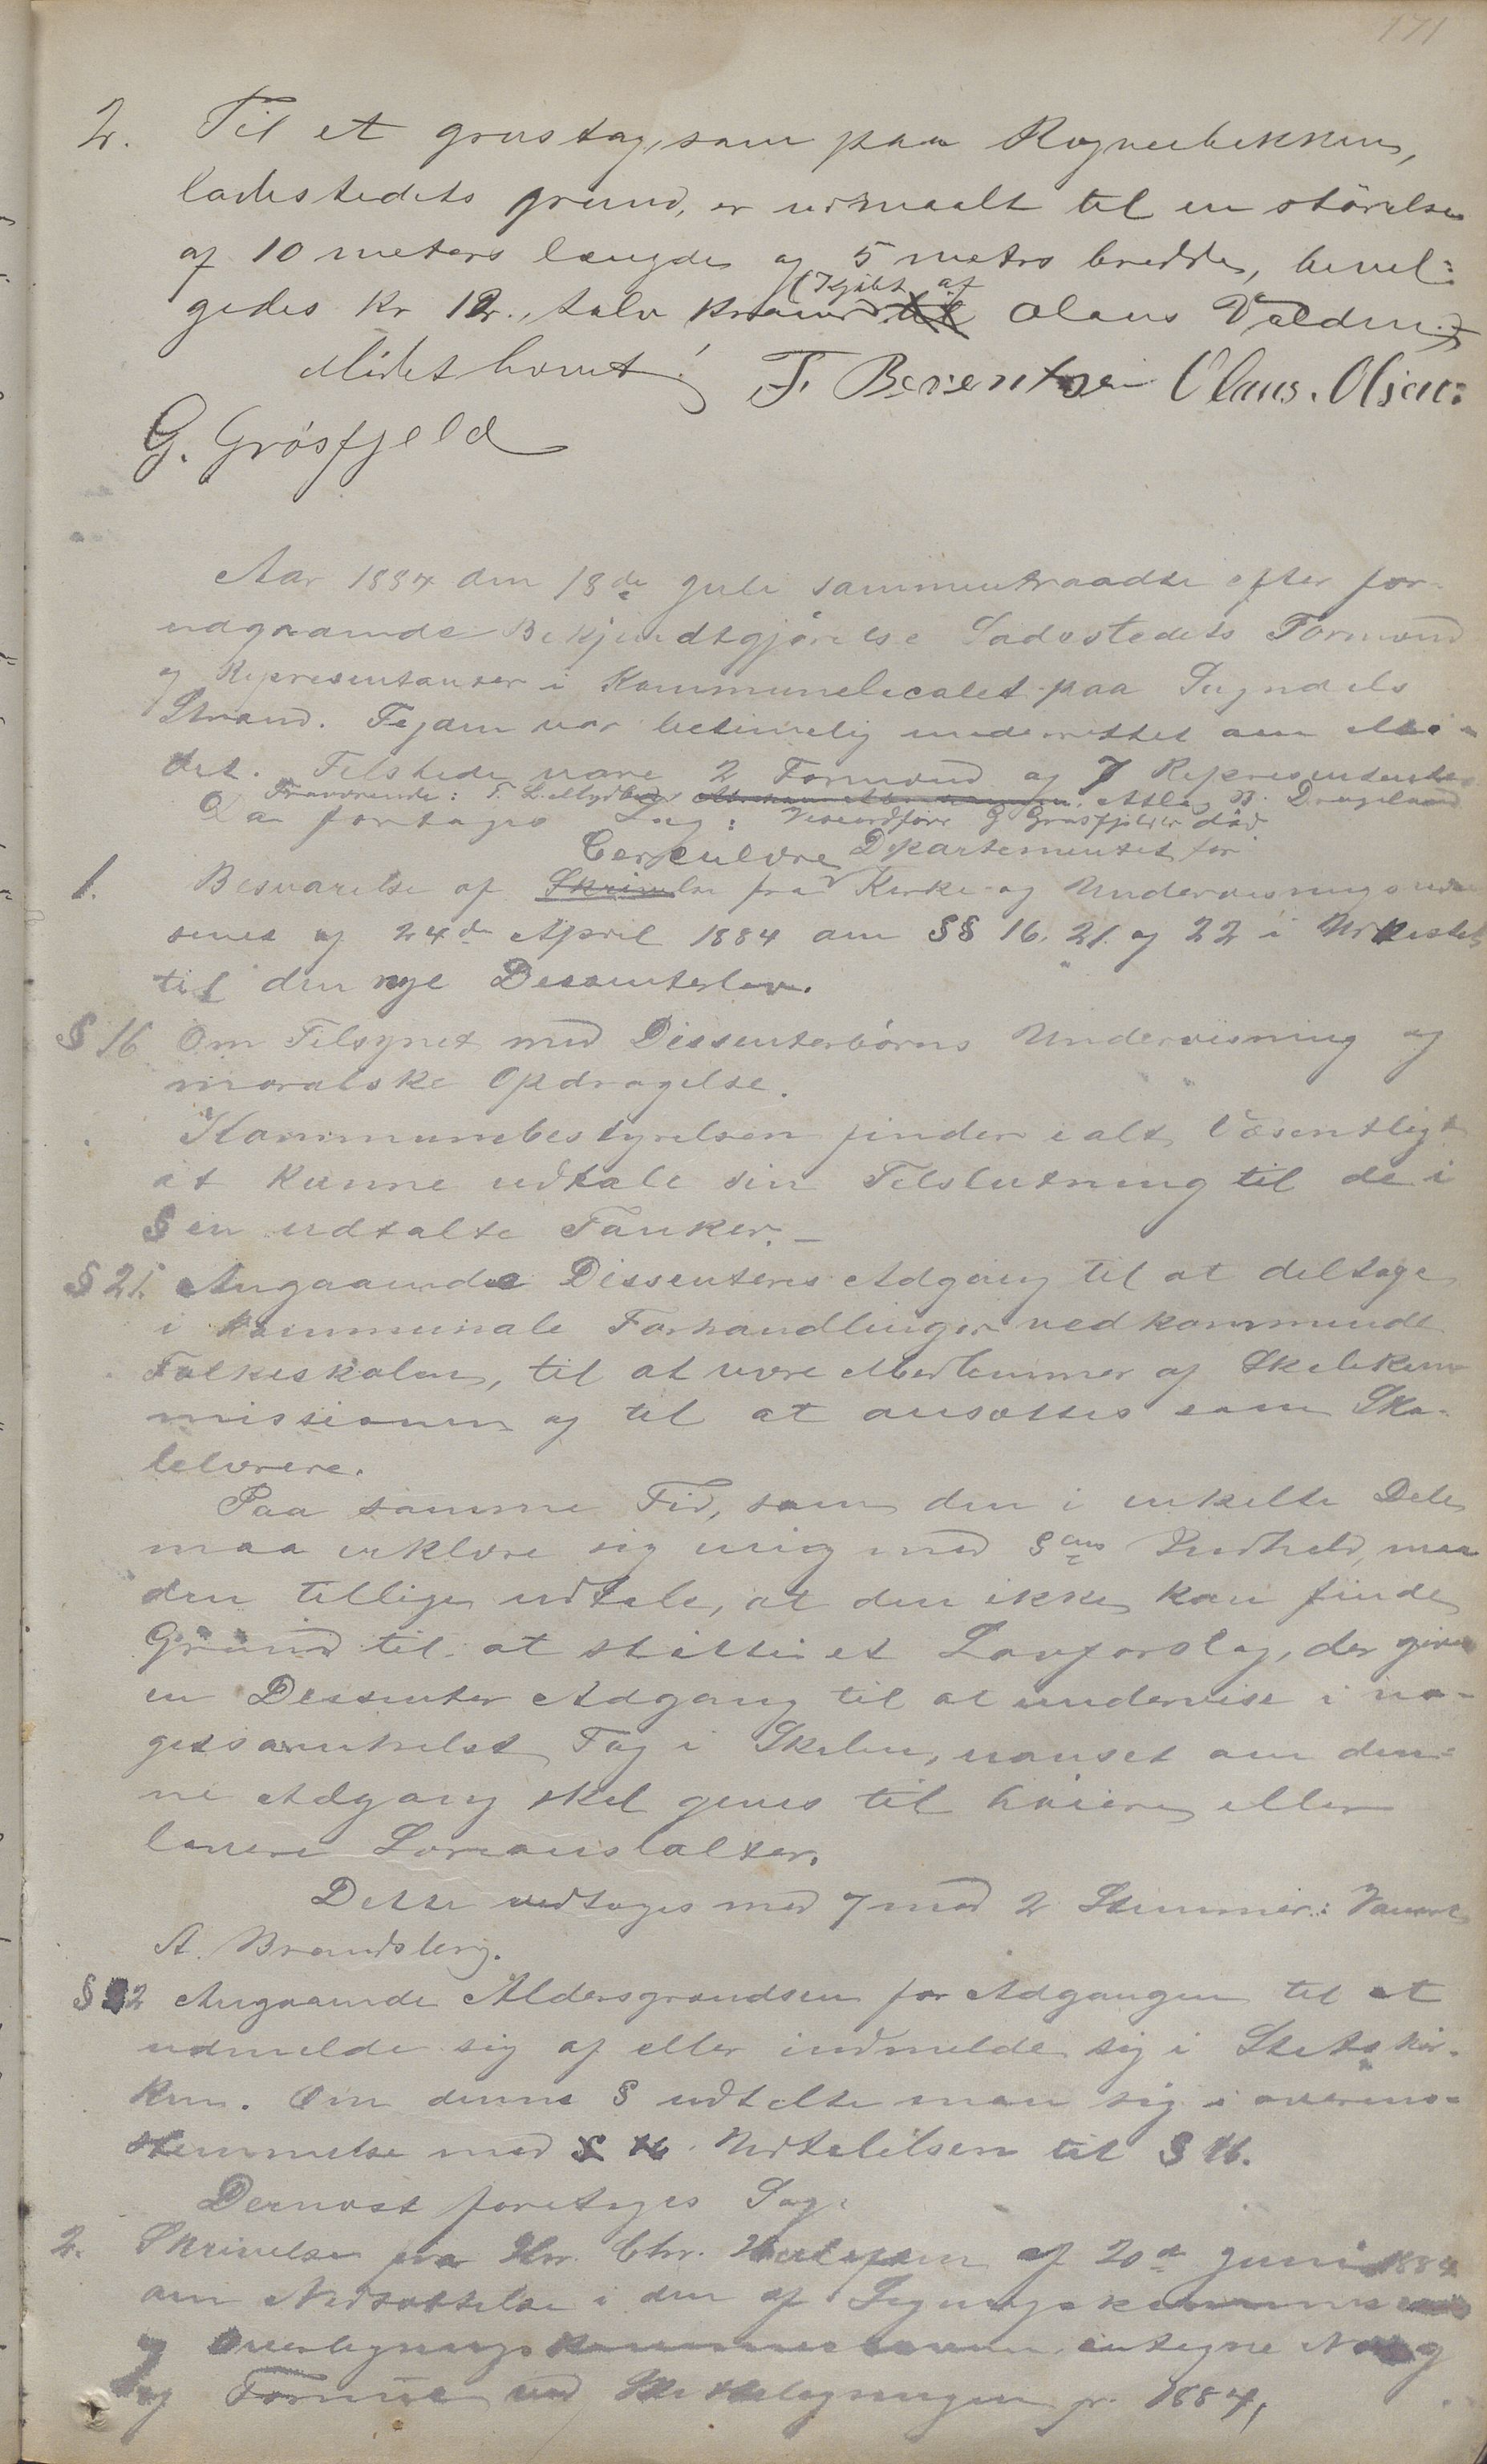 171
2. Til et grustag, som paa Rognebekken,
ladestedets grund, er udmaalt til en störelse
af 10 meters længde og 5 metrs bredde, bevil=
gedes Kr 12., tolv kroner (Kjöbt af Olaus Valdem.)
Mödet hævet! F. Berentsen Claus. Olsen:
G. Grösfjeld
Aar 1884 den 18de Juli sammentraadte efter for-
udgaaende Bekjendtgjörelse Ladestedets Formænd
og Representanter i Kommunelocalet paa Sogndals
Strand. Fogden var betimelig underrettet om Mö-
det. Tilstede vare 2 Formænd og 7 Representanter
Fraværende: T. L. Atle N. Drageland
Viceordförer G Grösfjeld er död
Da foretages Sag:
1. Besvarelse af Cerculære fra Departementet for Kirke- og Undervisningsvæ
senet af 24de April 1884 om §§ 16. 21. og 22 i Udkastet
til den nye Dessenterlov.
§ 16 Om Tilsynet med Dissenterbörns Undervisning og
moralske Opdragelse.
Kommunebestyrelsen finder i alt Væsentligt
at kunne udtale sin Tilslutning til de i
§ en udtalte Tanker. –
§ 21. Angaaende Dissenteres Adgang til at deltage
i kommunale Forhandlinger vedkommende
Folkeskolen, til at være Medlemmer af Skolekom
missionen og til at ansættes som Sko-
lelærere.
Paa samme Tid, som den i enkelte Dele
maa erklære sig enig med §ens Indhold, maa
den tillige udtale, at den ikke kan finde
Grund til at stötte et Lovforslag, der giver
en Dessenter Adgang til at undervise i no-
getsomhelst Fag i Skolen, uanset om den=
ne Adgang skal gives til höiere eller
lavere Læreanstalter.
Dette vedtoges med 7 mod 2 Stemmer:
A. Brandsberg.
§ 22 Angaaende Aldersgrændsen for Adgangen til at
udmelde sig af eller indmelde sig i Statskir-
ken. Om denne § udtalte man sig i overens-
stemmelse med Udtalelsen til § 16.
Dernæst foretoges Sag:
2. Skrivelse fra Hr. Chr. af 20de Juni 1884
om Nedsættelse i den af Ligningskommissionen
og Overligningskommissionen antagne Næring
og Formue ved Skatteligningen pr. 1884,